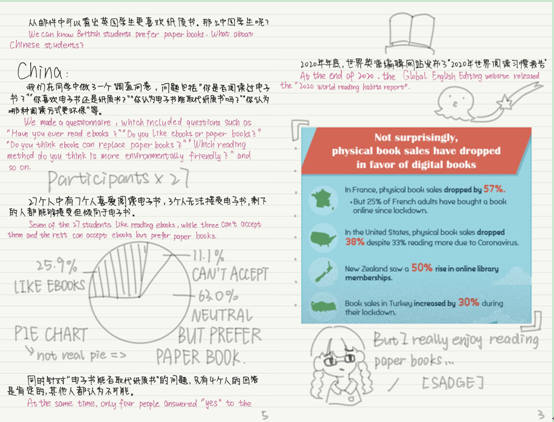 从邮件中可以看出英国学生更喜欢纸质书。那么中国学生呢?
We can know British students prefer paper books. What about
Chinese students?
China:
我们在同学中做了一个调查问卷,问题包括"你是否阅读过电子
书?""你喜欢电子书还是纸质书?""你认为电子书能取代纸质书吗?""你认为
哪种阅读方式更环保"等。
We made a questionnaire, which included questions such as
"Have you ever read ebooks?" "Do you like ebooks or paper books?"
"Do you think ebooks can replace paper books?" "Which reading
method do you think is more environmentally friendly?" and
so on.
Participants × 27
27个人中有7个人喜爱阅读电子书,3个人无法接受电子书,剩下
的人都能够接受但倾向于电子书。
Seven of the 27 students like reading ebooks, while three can't accept
them and the rest can accept ebooks but prefer paper books.
25.9%
LIKE EBOOKS
11.1%
CAN'T ACCEPT
63.0%
NEUTRAL
BUT PREFER
PAPER BOOK.
PIE CHART
not real pie =>
同时针对"电子书能否取代纸质书"的问题,只有4个人的回答
是肯定的,其他人都认为不可能。
At the same time, only four people answered "yes" to the
5
2020年年底,世界英语编辑网站发布了"2020年世界阅读习惯报告"
At the end of 2020, the Global English Editing website released
the "2020 world reading habits report".
Not surprisingly,
physical book sales have dropped
in favor of digital books
In France, physical book sales dropped by 57%.
• But 25% of French adults have bought a book
online since lockdown.
In the United States, physical book sales dropped
38% despite 33% reading more due to Coronavirus.
New Zealand saw a 50% rise in online library
memberships.
Book sales in Turkey increased by 30% during
their lockdown.
But I really enjoy reading
paper books...
[SADGE]
3